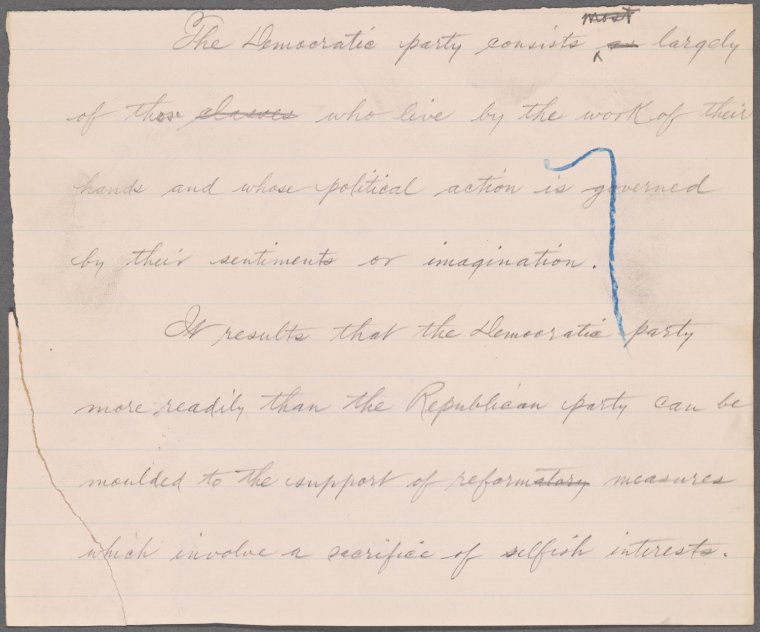 most
The Democratic party consists as largely
of those classes who live by the work of their
hands and whose political action is governed
by their sentiments or imagination.
It results that the Democratic party
more readily than the Republican party can be
moulded to the support of reformatory measures
which involve a sacrifice of selfish interests.